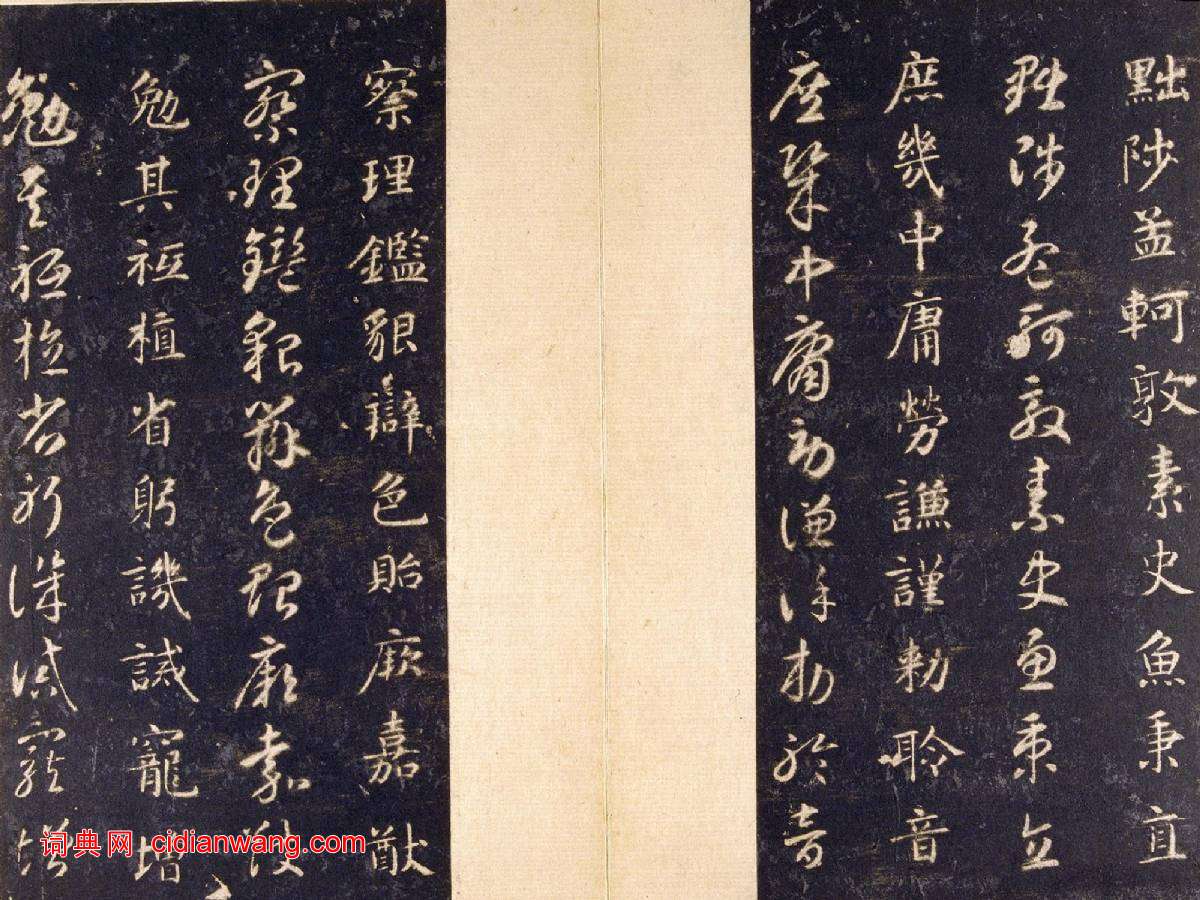 黜陟孟軻敦素史魚秉直
黜陟孟軻敦素史魚秉直
庶幾中庸勞謙謹勅聆音
庶幾中庸勞謙謹勅聆音
察理鑑貌辯色貽厥嘉猷
察理鑑貌辯色貽厥嘉猷
勉其祗植省躬譏誡寵增
勉其祗植省躬譏誡寵增
词典网 cidianwang.com